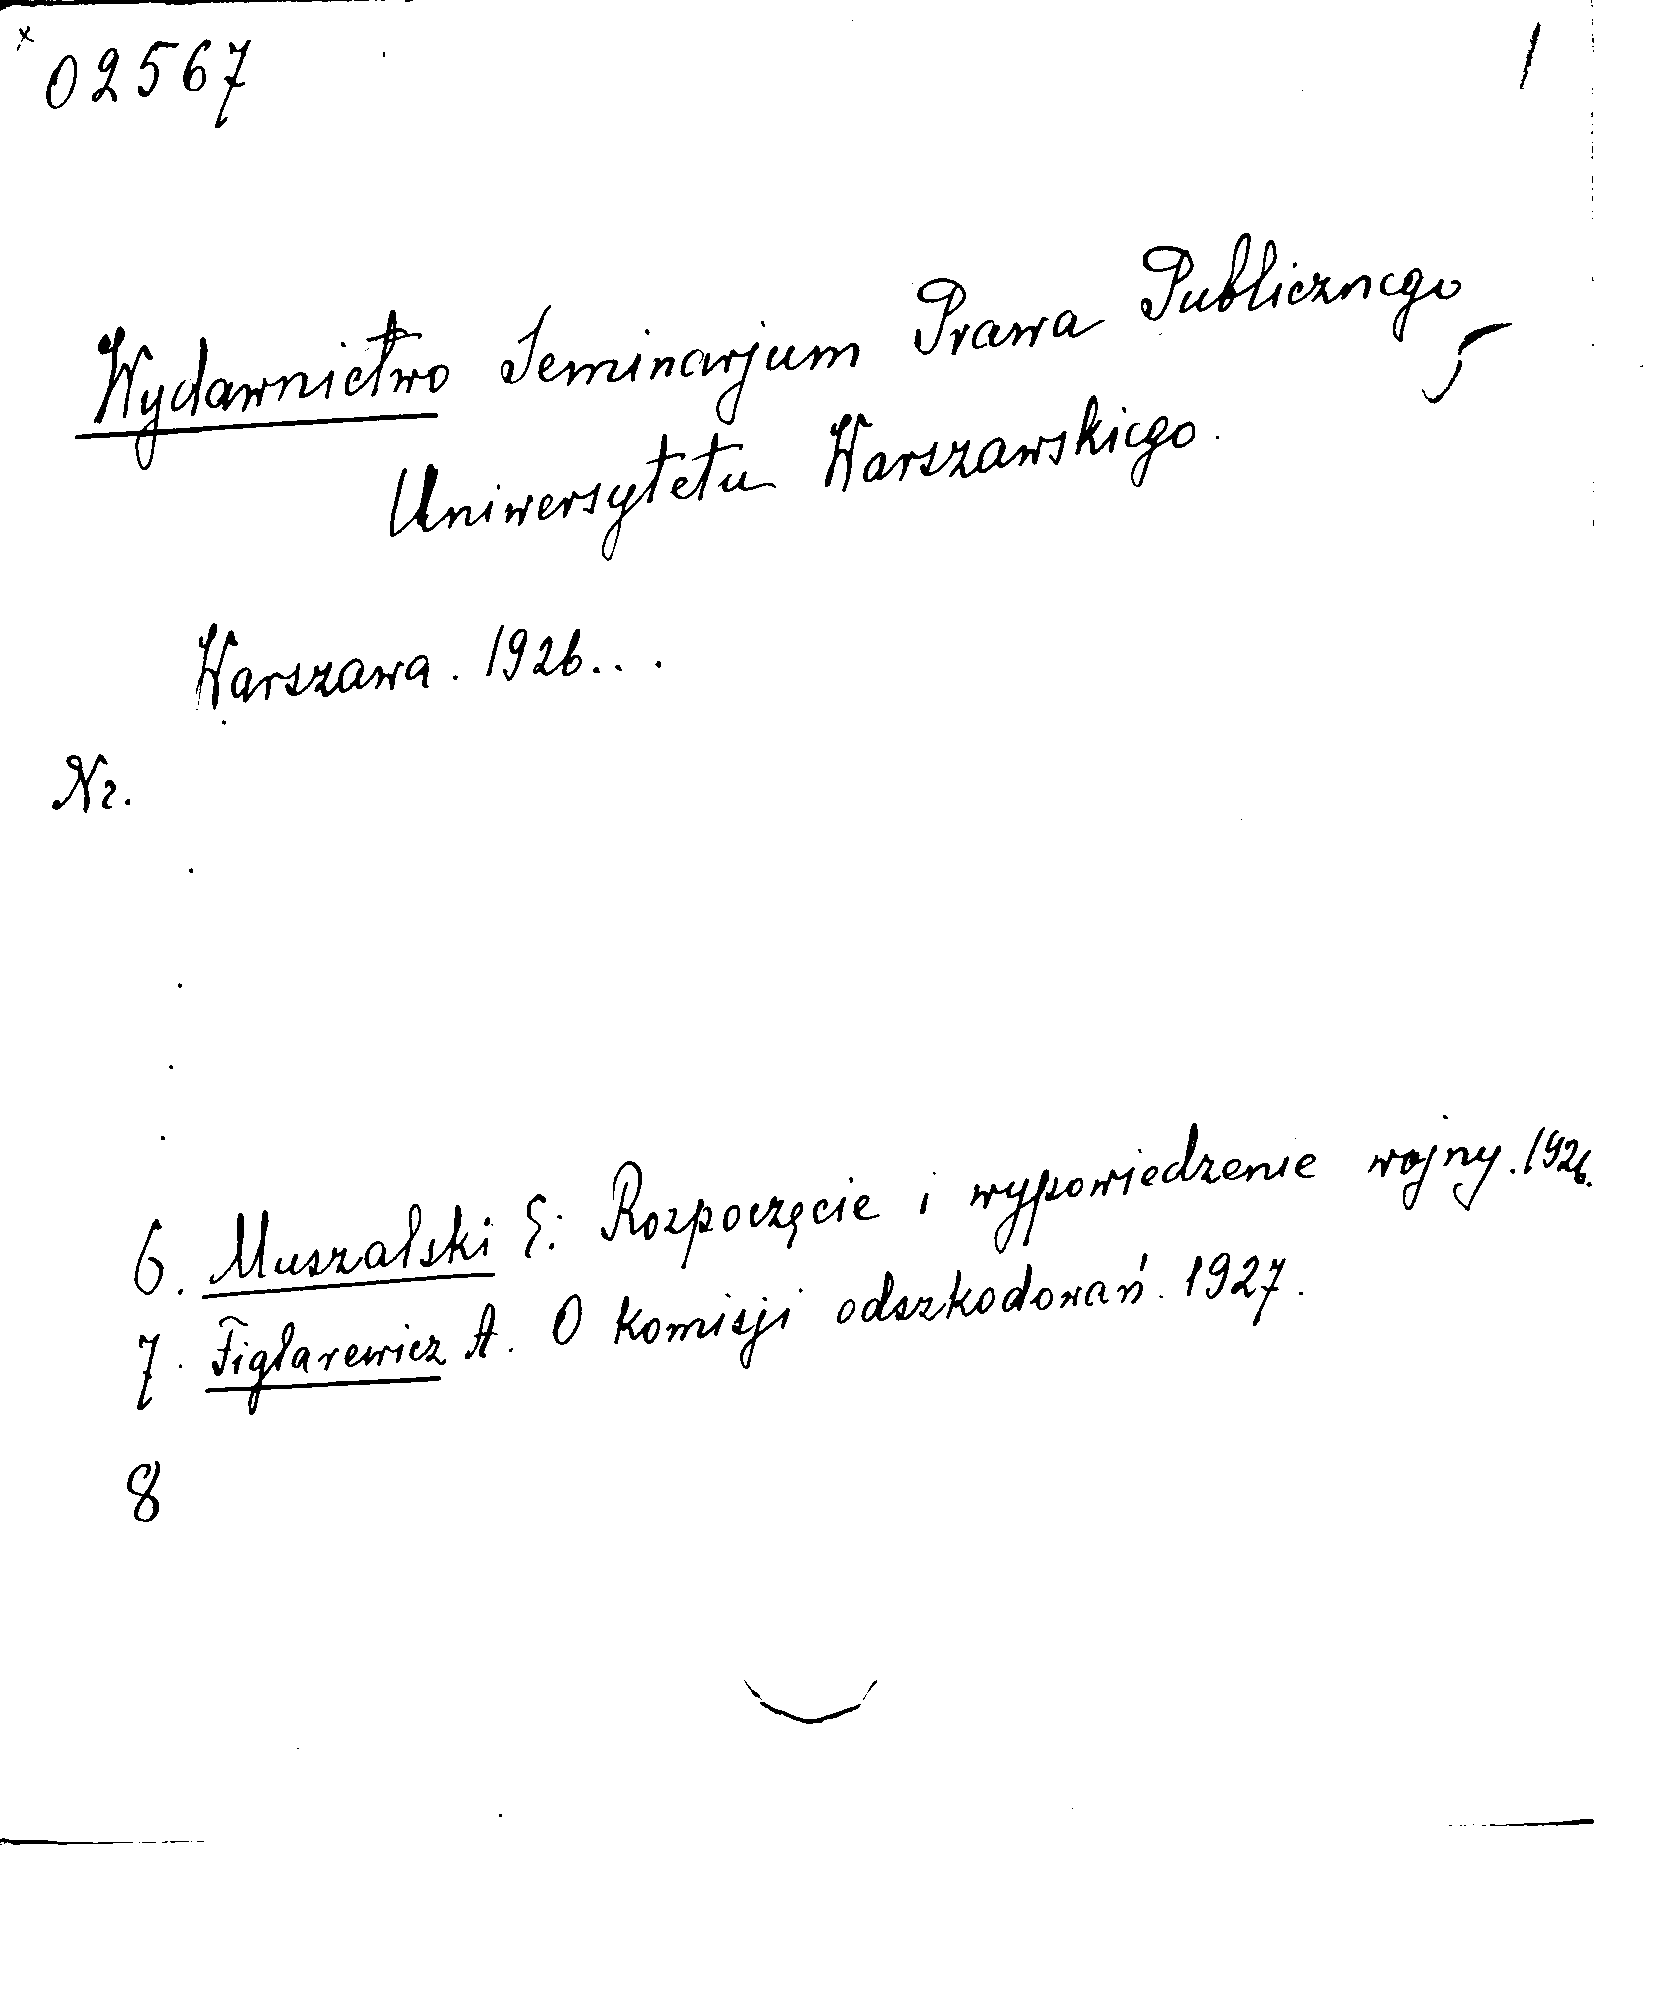 02567 1
Wydawnictwo Seminarjum Prawa Publicznego
Uniwersytetu Warszawskiego.
Warszawa. 1926...
Nr.
6. Muszalski E: Rozpoczęcie i wypowiedzenie wojny. 1926.
7. Figlarewicz A. O komisji odszkodowań. 1927.
8